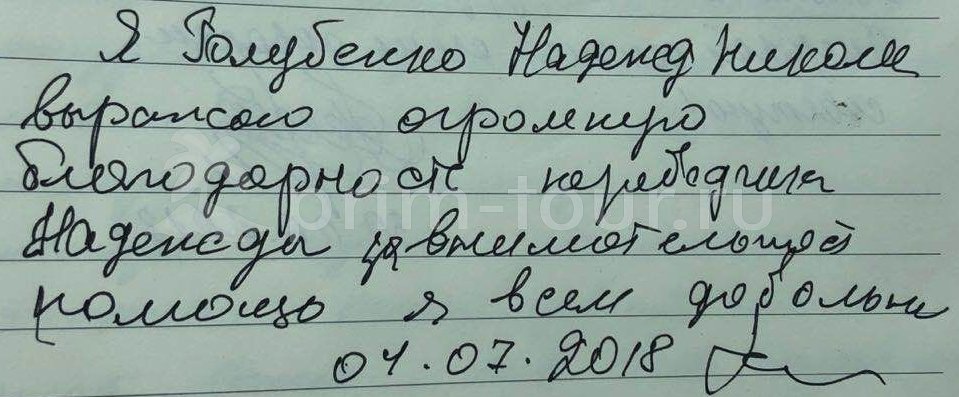 Я Голубенко Надежд Никола
выражаю огромную
благодарность переводчика
Надежды за внимательность
помощь я всем довольна
04.07.2018
prim-tour.ru